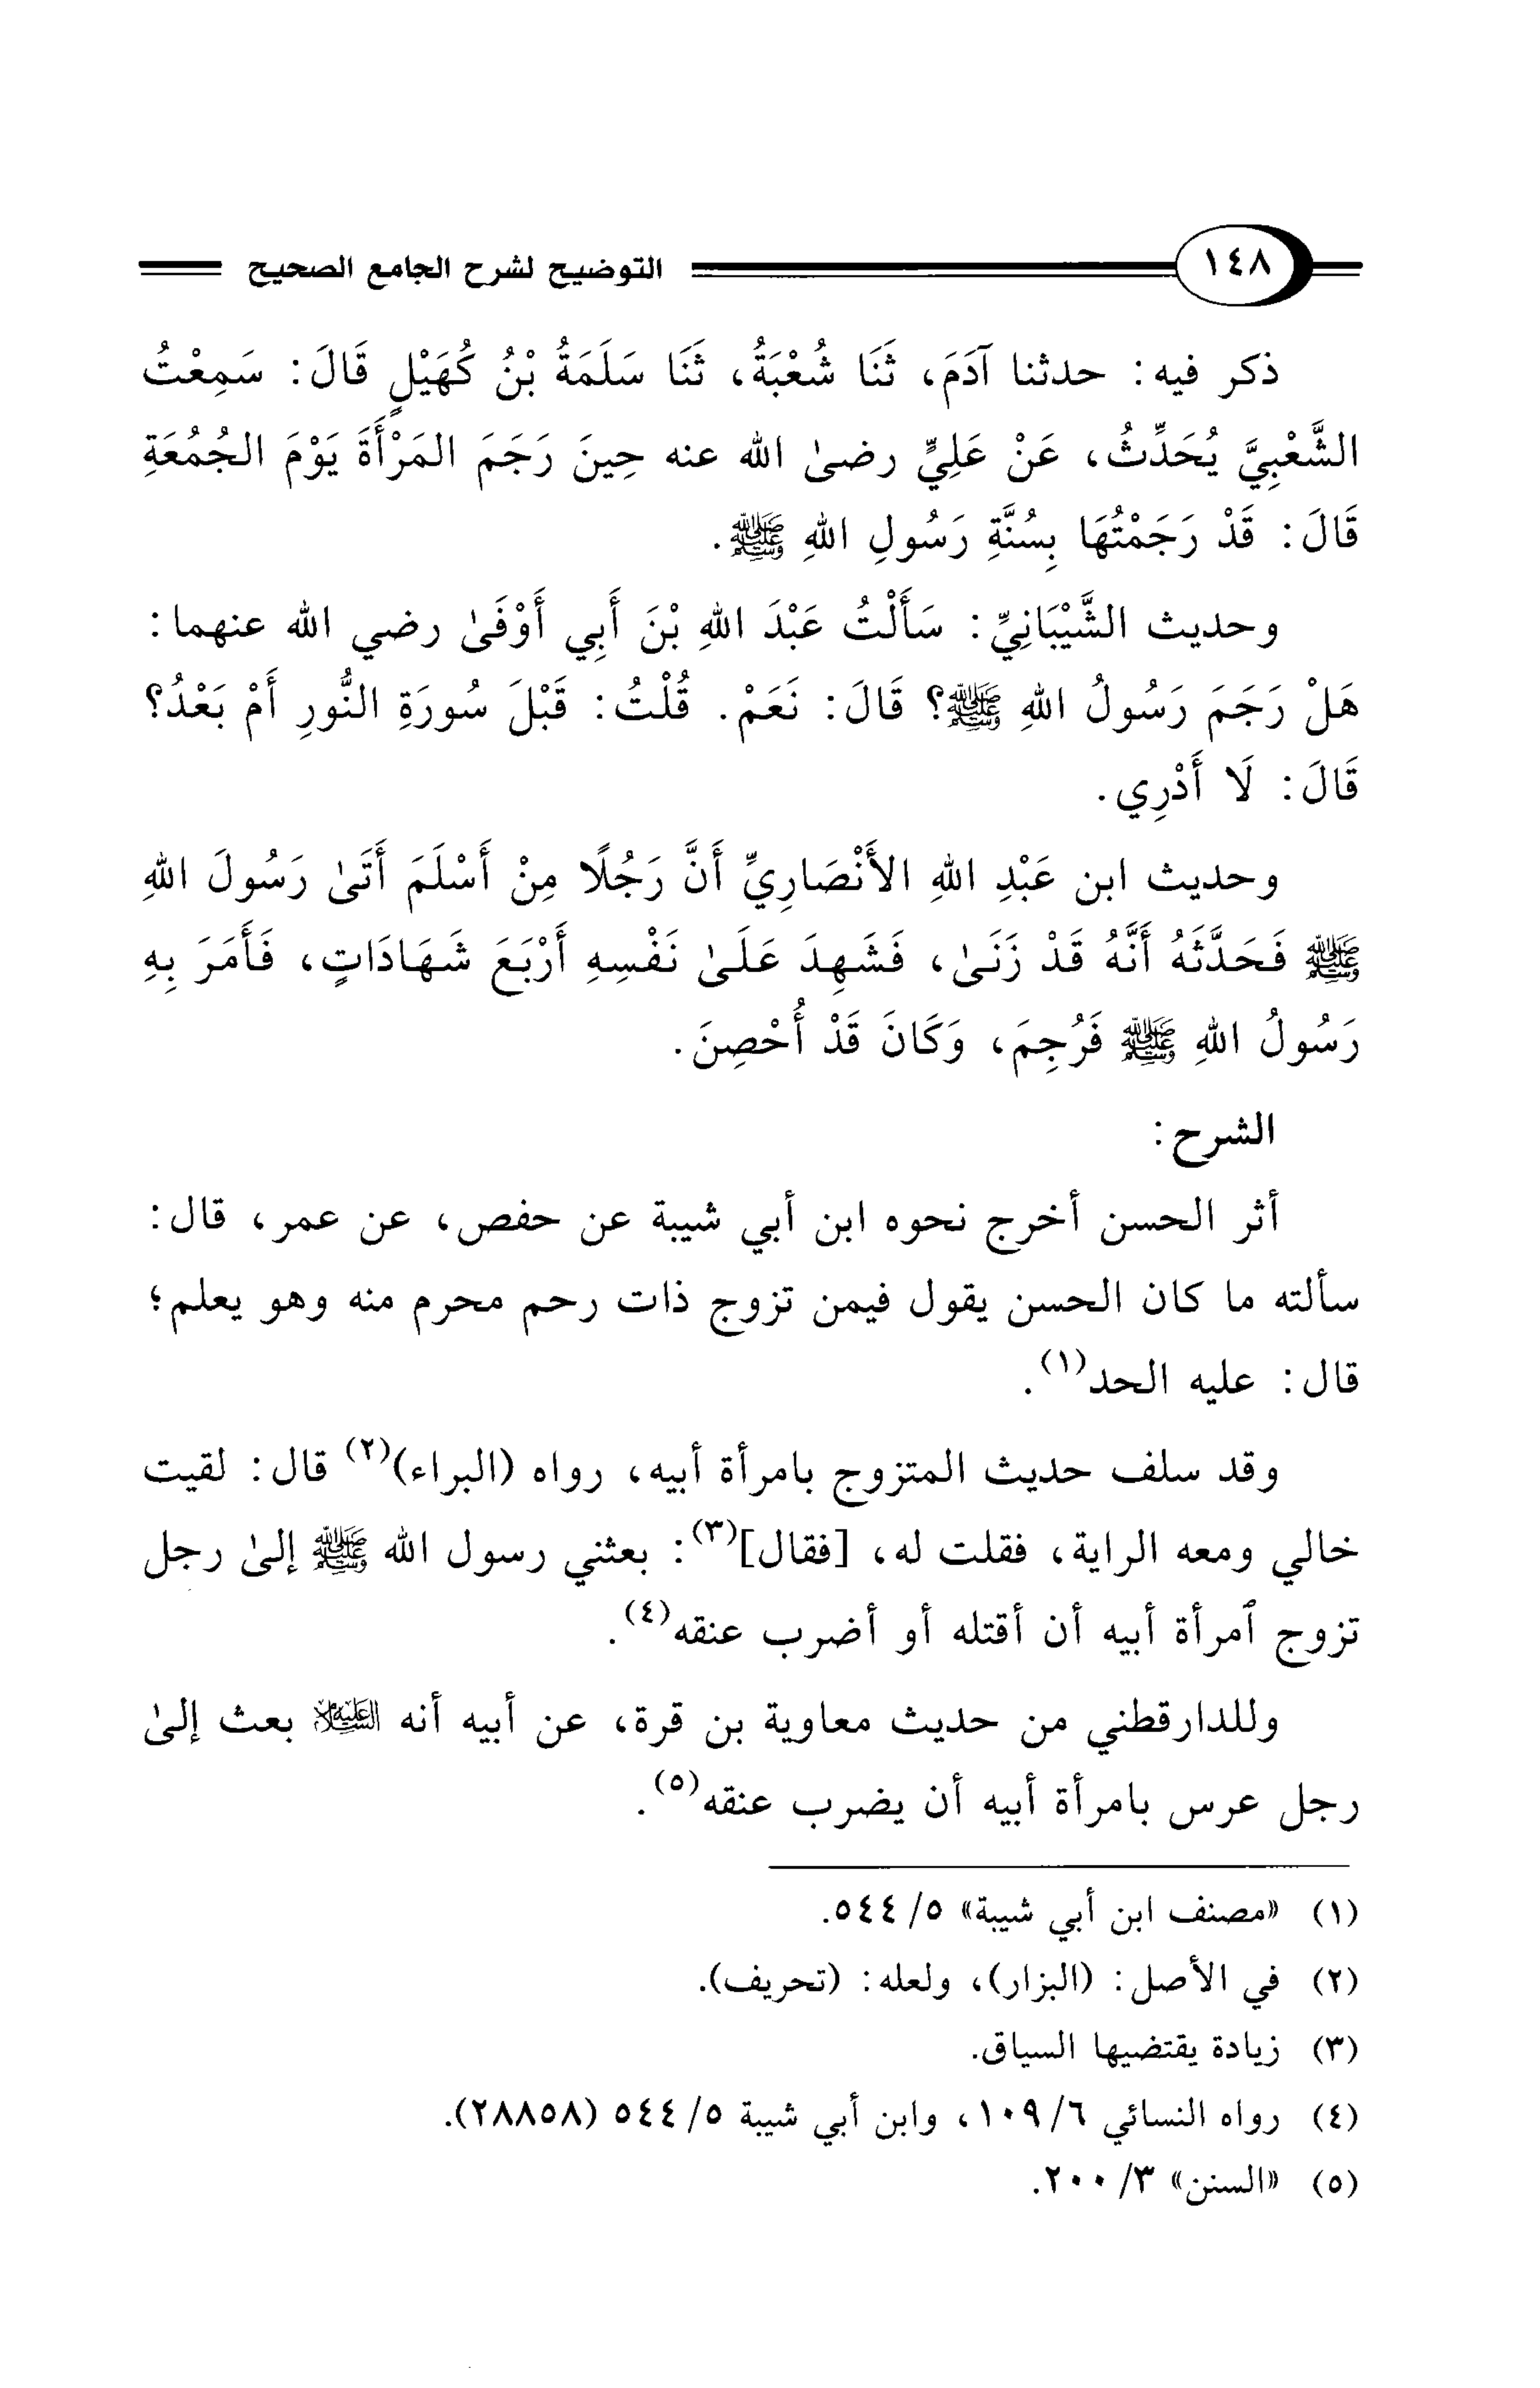 ١٤٨ التوضيح لشرح الجامع الصحيح
ذكر فيه: حدثنا آدَمَ، ثَنَا شُعْبَةُ، ثَنَا سَلَمَةُ بْنُ كُهَيْلٍ قَالَ: سَمِعْتُ
الشَّعْبِيَّ يُحَدِّثُ، عَنْ عَلِيٍّ رضىٰ الله عنه حِينَ رَجَمَ المَرْأَةَ يَوْمَ الجُمُعَةِ
قَالَ: قَدْ رَجَمْتُهَا بِسُنَّةِ رَسُولِ اللهِ ﷺ.
وحديث الشَّيْبَانِيِّ: سَأَلْتُ عَبْدَ اللهِ بْنَ أَبِي أَوْفَىٰ رضي الله عنهما:
هَلْ رَجَمَ رَسُولُ اللهِ ﷺ؟ قَالَ: نَعَمْ. قُلْتُ: قَبْلَ سُورَةِ النُّورِ أَمْ بَعْدُ؟
قَالَ: لَا أَدْرِي.
وحديث ابن عَبْدِ اللهِ الأَنْصَارِيِّ أَنَّ رَجُلًا مِنْ أَسْلَمَ أَتَىٰ رَسُولَ اللهِ
ﷺ فَحَدَّثَهُ أَنَّهُ قَدْ زَنَىٰ، فَشَهِدَ عَلَىٰ نَفْسِهِ أَرْبَعَ شَهَادَاتٍ، فَأَمَرَ بِهِ
رَسُولُ اللهِ ﷺ فَرُجِمَ، وَكَانَ قَدْ أُحْصِنَ.
الشرح:
أثر الحسن أخرج نحوه ابن أبي شيبة عن حفص، عن عمر، قال:
سألته ما كان الحسن يقول فيمن تزوج ذات رحم محرم منه وهو يعلم؛
قال: عليه الحد(١).
وقد سلف حديث المتزوج بامرأة أبيه، رواه (البراء)(٢) قال: لقيت
خالي ومعه الراية، فقلت له، [فقال](٣): بعثني رسول الله ﷺ إلىٰ رجل
تزوج ٱمرأة أبيه أن أقتله أو أضرب عنقه(٤).
وللدارقطني من حديث معاوية بن قرة، عن أبيه أنه عليه السلام بعث إلىٰ
رجل عرس بامرأة أبيه أن يضرب عنقه(٥).
(١) «مصنف ابن أبي شيبة» ٥/ ٥٤٤.
(٢) في الأصل: (البزار)، ولعله: (تحريف).
(٣) زيادة يقتضيها السياق.
(٤) رواه النسائي ٦/ ١٠٩، وابن أبي شيبة ٥/ ٥٤٤ (٢٨٨٥٨).
(٥) «السنن» ٣/ ٢٠٠.